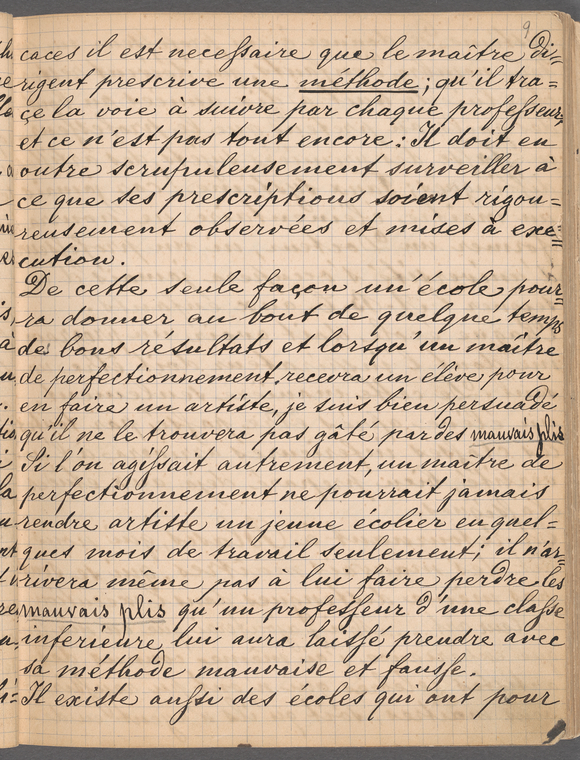 9
caces il est necessaire que le maître di=
rigent prescrive une méthode; qu'il tra=
çe la voie à suivre par chaque professeur,
et ce n'est pas tout encore: Il doit en
outre scrupuleusement surveiller à
ce que ses prescriptions soient rigou=
reusement observées et mises à exe=
cution.
De cette seule façon un'école pour=
ra donner au bout de quelque temps
des bons résultats et lorsqu'un maître
de perfectionnement, recevra un élève pour
en faire un artiste, je suis bien persuadé
qu'il ne le trouvera pas gâté par des mauvais plis
Si l'on agissait autrement, un maître de
perfectionnement ne pourrait jamais
rendre artiste un jeune écolier en quel=
ques mois de travail seulement; il n'ar=
rivera même pas à lui faire perdre les
mauvais plis qu'un professeur d'une classe
inferieure, lui aura laissé prendre avec
sa méthode mauvaise et fausse.
Il existe aussi des écoles qui ont pour